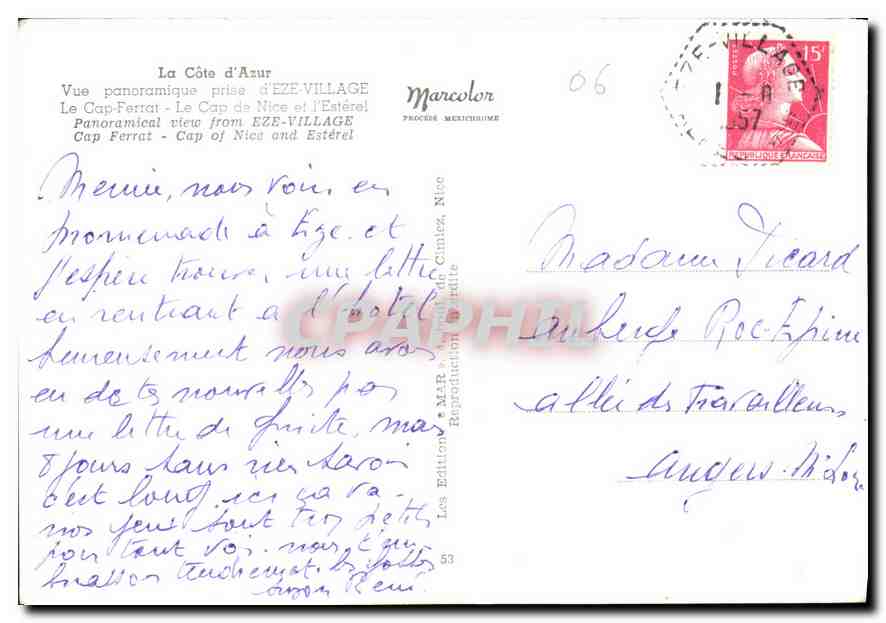 La Côte d'Azur
Vue panoramique prise d'EZE-VILLAGE
Le Cap-Ferrat - Le Cap de Nice et l'Estérel
Panoramical view from EZE-VILLAGE
Cap Ferrat - Cap of Nice and Estérel
Marcolor
PROCÉDÉ MEXICHROME
06
EZE-VILLAGE
POSTES
15F
1 - 8
1957
REPUBLIQUE FRANÇAISE
nous voici en
promenade à Eze. et
j'espère trouver une lettre
en rentrant à l'hotel
heureusement nous avons
eu de tes nouvelles par
une lettre de mais
8 jours sans rien savoir
c'est long. ici ça va -
nos yeux sont trop petits
pour tout voir. nous t'em-
brassons tendrement. les
Suzon René
Les Editions "MAR" de Cimiez, Nice
Reproduction interdite
53
CPAPHIL
Madame Picard
auberge Roc-Epine
allée des Travailleurs
Angers. M. Loire